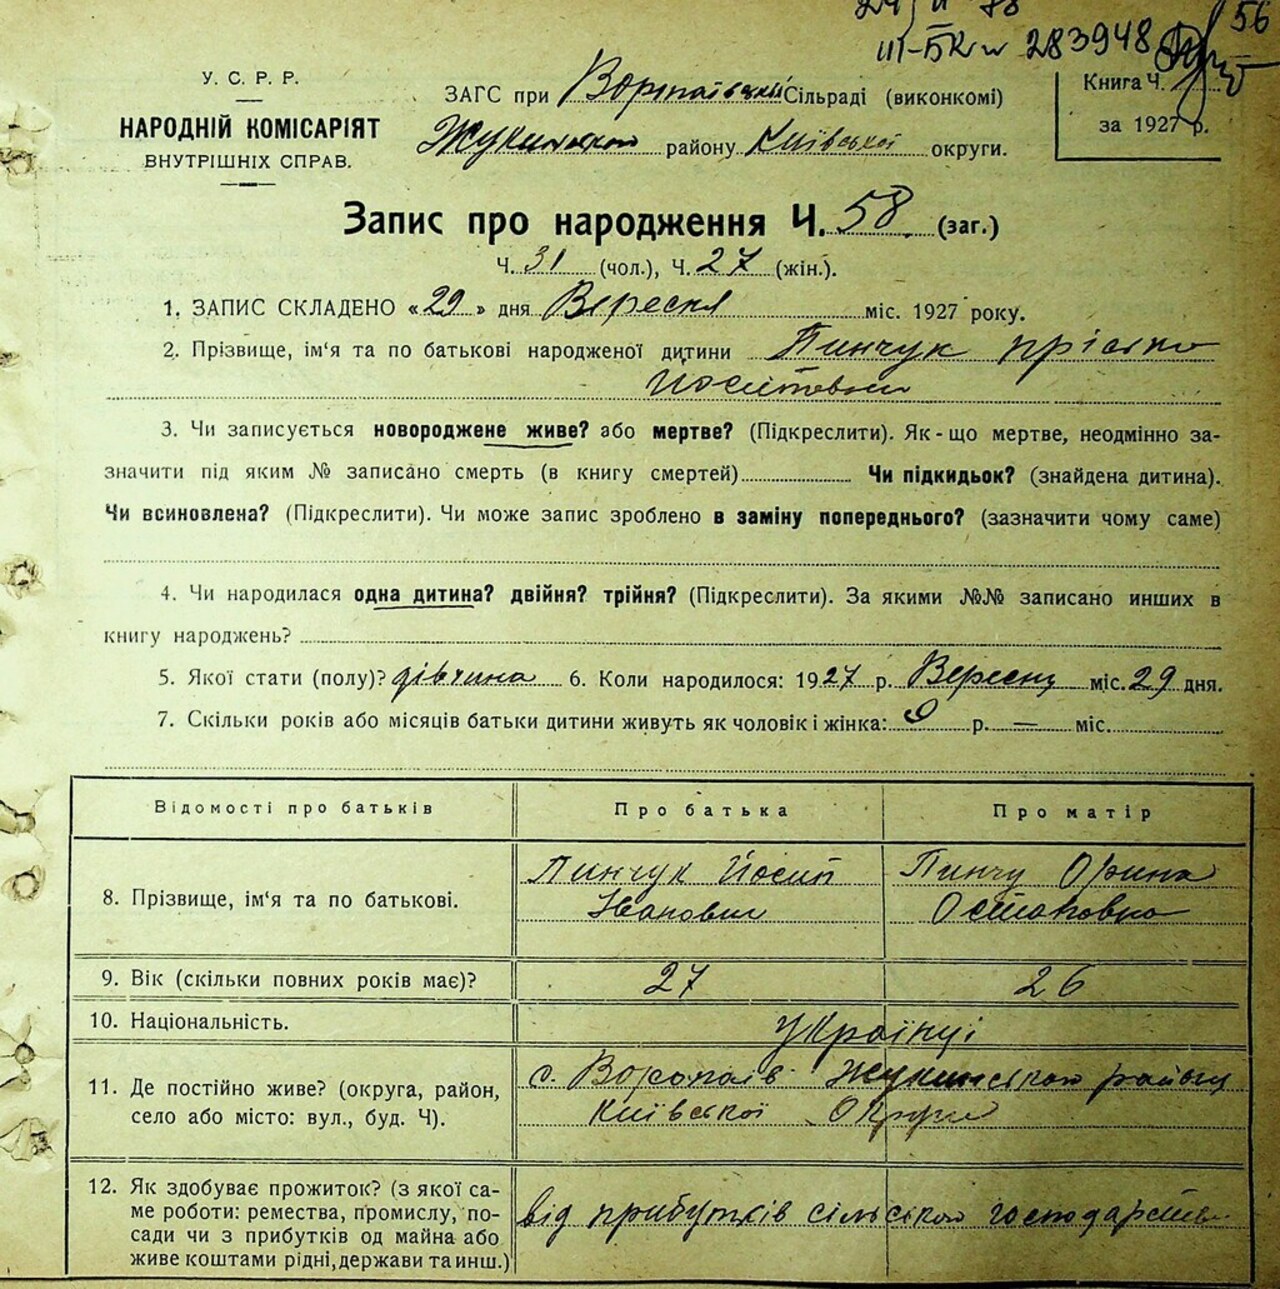 56
III-БК № 283948
У. С. Р. Р.
НАРОДНІЙ КОМІСАРІЯТ
ВНУТРІШНІХ СПРАВ.
ЗАГС при Сільраді (виконкомі)
Жукинської району Київської округи.
Книга Ч.
за 1927 р.
Запис про народження Ч. 58 (заг.)
Ч. 31 (чол.), Ч. 27 (жін.).
1. ЗАПИС СКЛАДЕНО «29» дня Вересня міс. 1927 року.
2. Прізвище, ім'я та по батькові народженої дитини Пинчук Прісько
Йосиповни
3. Чи записується новороджене живе? або мертве? (Підкреслити). Як-що мертве, неодмінно за-
значити під яким № записано смерть (в книгу смертей) Чи підкидьок? (знайдена дитина).
Чи всиновлена? (Підкреслити). Чи може запис зроблено в заміну попереднього? (зазначити чому саме)
4. Чи народилася одна дитина? двійня? трійня? (Підкреслити). За якими №№ записано инших в
книгу народжень?
5. Якої стати (полу)? дівчина 6. Коли народилося: 1927 р. Вересня міс. 29 дня.
7. Скільки років або місяців батьки дитини живуть як чоловік і жінка: 9 р. = міс.
Відомості про батьків Про батька Про матір
8. Прізвище, ім'я та по батькові. Пинчук Йосип Пинчу Орина
Іванович Остаповна
9. Вік (скільки повних років має)? 27 26
10. Національність. Українці
11. Де постійно живе? (округа, район,
село або місто: вул., буд. Ч).
с. Воропаїв Жукинського району
Київської Округи
12. Як здобуває прожиток? (з якої са-
ме роботи: ремества, промислу, по-
сади чи з прибутків од майна або
живе коштами рідні, держави та инш.)
від прибутків сільського господарства